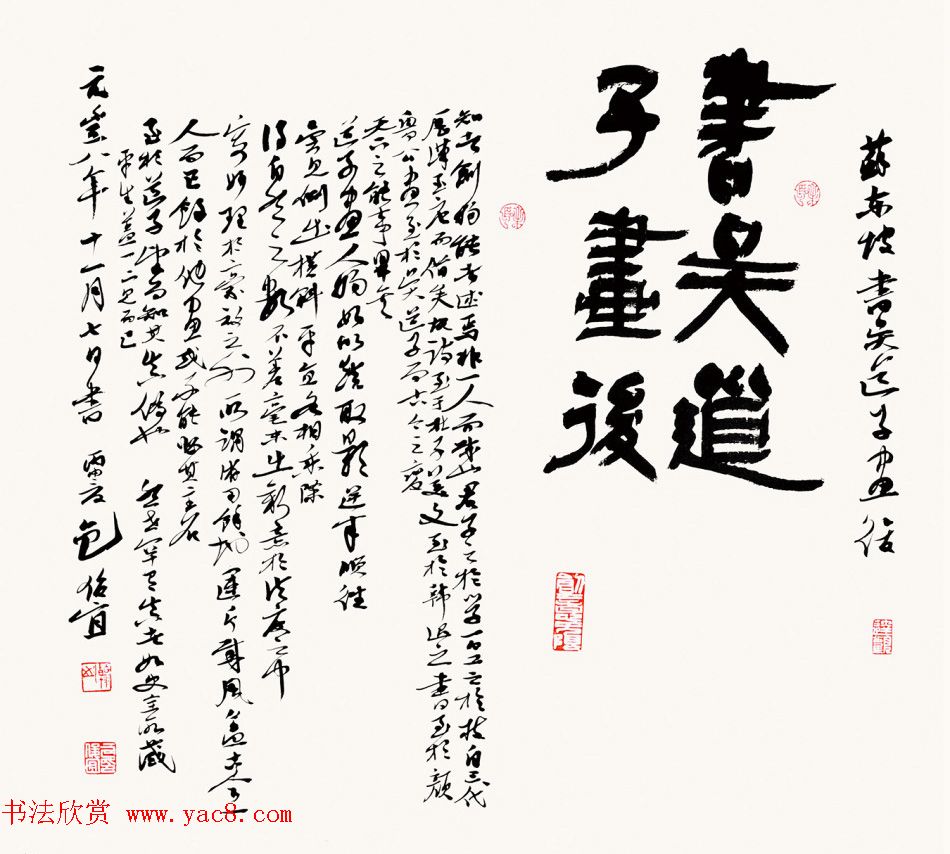 蘇東坡書吳道子畫後
書吳道
子畫後
知者創物能者述焉非一人而成也君子之於學百工之於技自三代
歷漢至唐而備矣故詩至于杜子美文至於韓退之書至於顏
魯公畫至於吳道子而古今之變
天下之能事畢矣
道子畫人物如以燈取影逆來順往
旁見側出橫斜平直各相乘除
得自然之數不差毫末出新意於法度之中
寄妙理於豪放之外所謂游刃餘地運斤成風盖古今一
人而已餘於他畫或不能必其主名
至於道子望而知其真偽也然世罕有真者如史全叔所藏
平生盖一二見而已
元豐八年十一月七日書 包俊宜
书法欣赏 www.yac8.com